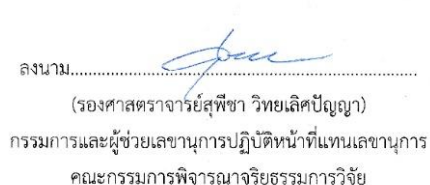 ลงนาม................................................................
(รองศาสตราจารย์สุพีชา วิทยเลิศปัญญา)
กรรมการและผู้ช่วยเลขานุการปฏิบัติหน้าที่แทนเลขานุการ
คณะกรรมการพิจารณาจริยธรรมการวิจัย